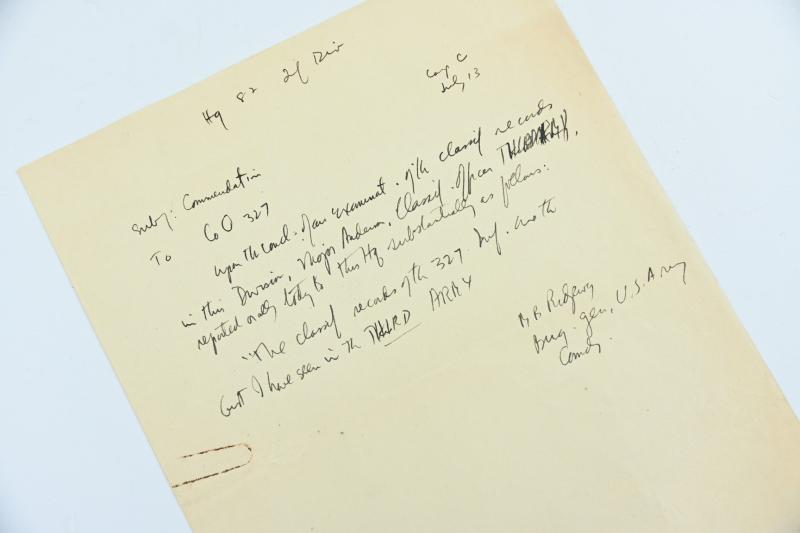 Hq 82 Inf Div
Camp C
July 13
Subj: Commendation
To CO 327
Upon the concl. of an examinat. of the classif records
in this Division, Major Anderson, Classif. Officer THIRD ARMY,
reported orally today to this Hq substantially as follows:
"The classif records of the 327 Inf. are the
best I have seen in the THIRD ARMY
M B Ridgway
Brig. Gen, U.S. Army
Comdg.